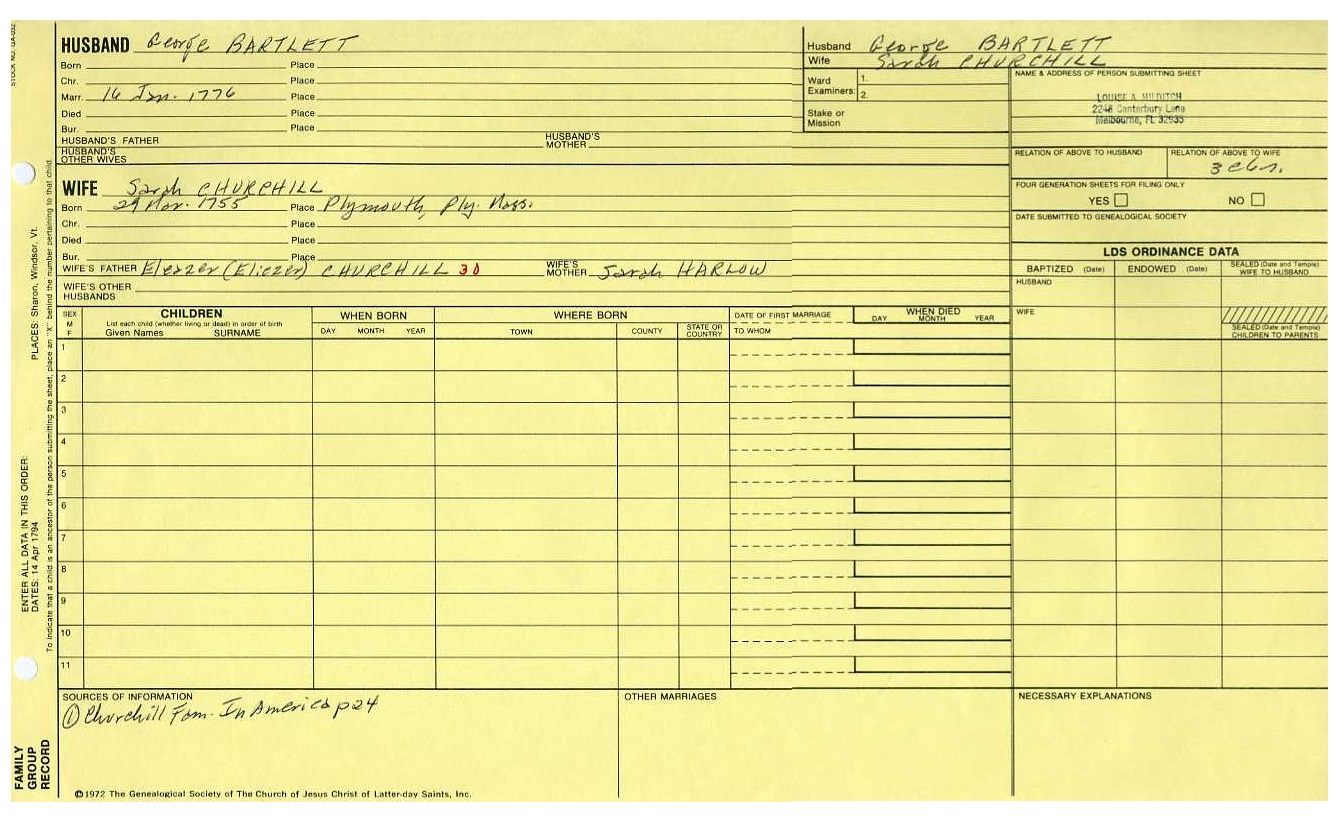 STOCK NO. GA-032
HUSBAND George BARTLETT
Born Place
Chr. Place
Marr. 16 Jan. 1776 Place
Died Place
Bur. Place
HUSBAND'S FATHER HUSBAND'S MOTHER
HUSBAND'S OTHER WIVES
Husband George BARTLETT
Wife Sarah CHURCHILL
Ward Examiners: 1.
2.
Stake or Mission
NAME & ADDRESS OF PERSON SUBMITTING SHEET
LOUISE A. HILDITCH
2248 Canterbury Lane
Melbourne, FL 32935
RELATION OF ABOVE TO HUSBAND RELATION OF ABOVE TO WIFE
FOUR GENERATION SHEETS FOR FILING ONLY
YES NO
DATE SUBMITTED TO GENEALOGICAL SOCIETY
WIFE Sarah CHURCHILL
Born 29 Mar. 1755 Place Plymouth, Ply. Mass.
Chr. Place
Died Place
Bur. Place
WIFE'S FATHER Eleazer (Eliezer) CHURCHILL 30 WIFE'S MOTHER Sarah HARLOW
WIFE'S OTHER HUSBANDS
LDS ORDINANCE DATA
BAPTIZED (Date) ENDOWED (Date) SEALED (Date and Temple) WIFE TO HUSBAND
HUSBAND
WIFE
SEALED (Date and Temple) CHILDREN TO PARENTS
SEX M F
CHILDREN
List each child (whether living or dead) in order of birth
Given Names SURNAME
WHEN BORN
DAY MONTH YEAR
WHERE BORN
TOWN COUNTY STATE OR COUNTRY
DATE OF FIRST MARRIAGE
TO WHOM
WHEN DIED
DAY MONTH YEAR
1
2
3
4
5
6
7
8
9
10
11
SOURCES OF INFORMATION
① Churchill Fam. In America p24
OTHER MARRIAGES
NECESSARY EXPLANATIONS
©1972 The Genealogical Society of The Church of Jesus Christ of Latter-day Saints, Inc.
FAMILY GROUP RECORD
ENTER ALL DATA IN THIS ORDER:
DATES: 14 Apr 1794
PLACES: Sharon, Windsor, Vt.
To indicate that a child is an ancestor of the person submitting the sheet, place an "X" behind the number pertaining to that child.